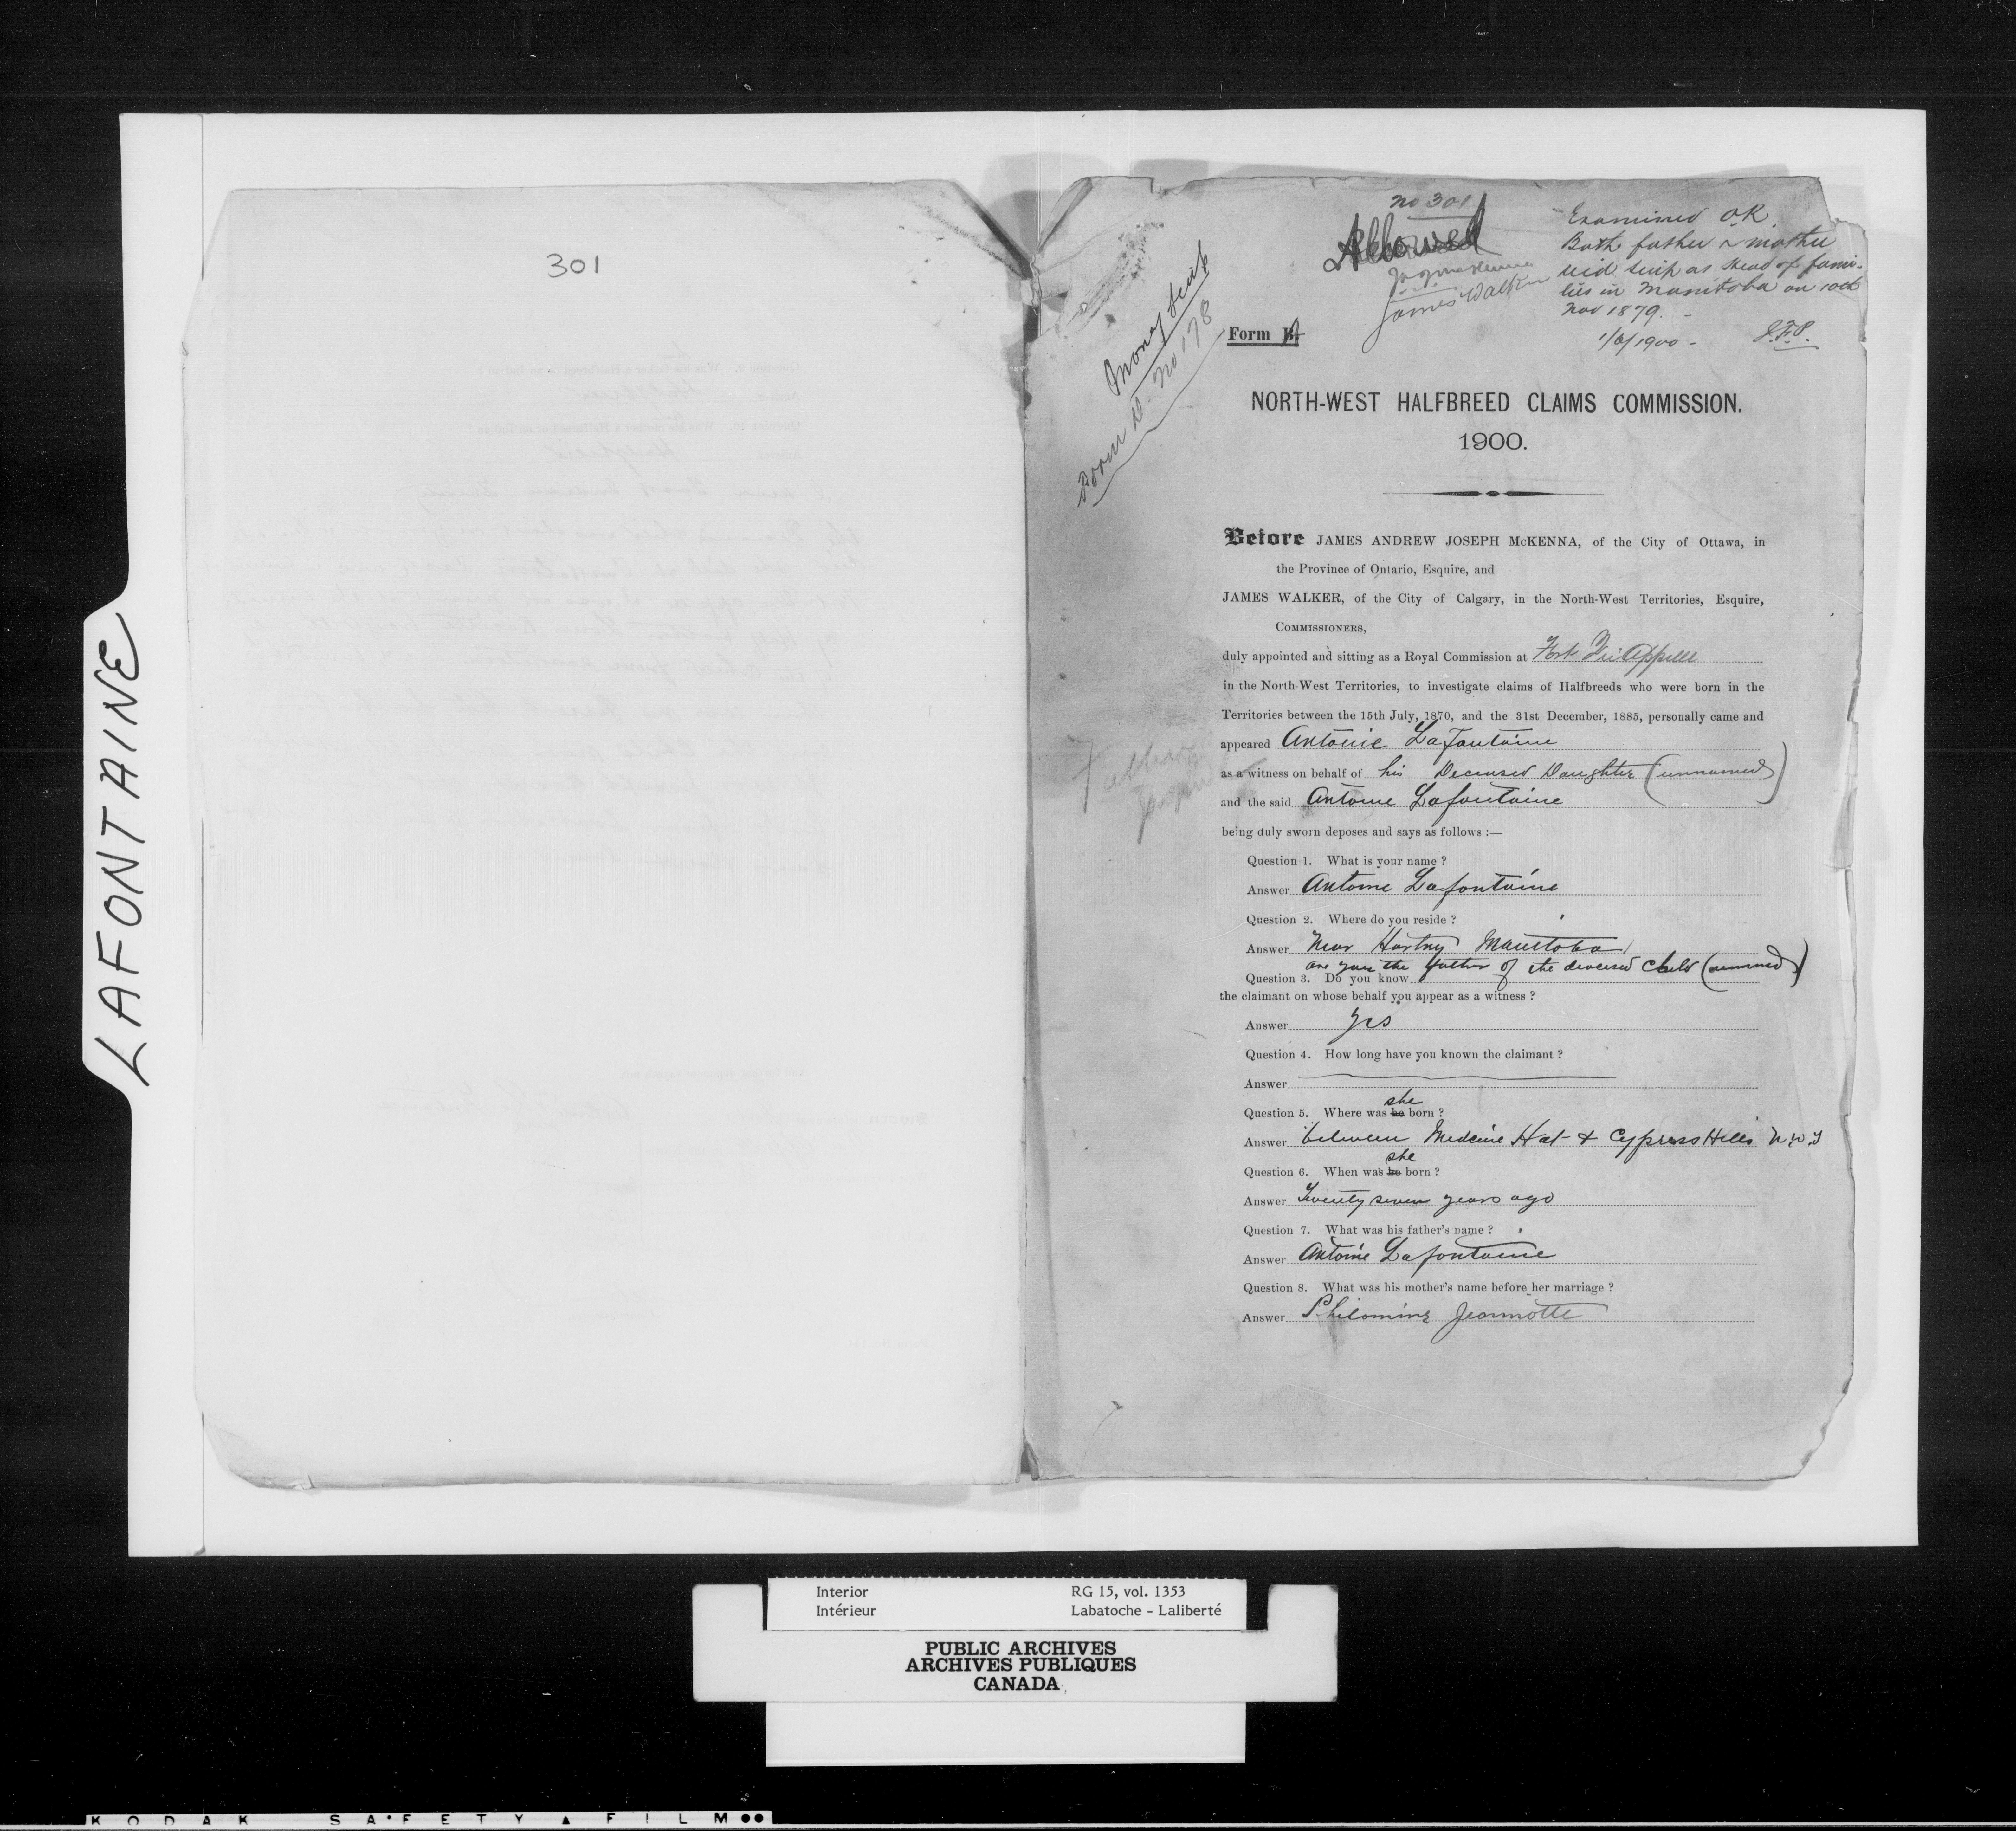 LAFONTAINE
301
No 301
Allowed
James Walker
Examined O.K.
Both father & mother
recd scrip as head of fami-
lies in Manitoba on 10th
Nov 1879.
1/6/1900 - J.F.P.
Money Scrip
Form D. No 178
Form B.
NORTH-WEST HALFBREED CLAIMS COMMISSION.
1900.
Before JAMES ANDREW JOSEPH McKENNA, of the City of Ottawa, in
the Province of Ontario, Esquire, and
JAMES WALKER, of the City of Calgary, in the North-West Territories, Esquire,
COMMISSIONERS,
duly appointed and sitting as a Royal Commission at Fort Qu'Appelle
in the North-West Territories, to investigate claims of Halfbreeds who were born in the
Territories between the 15th July, 1870, and the 31st December, 1885, personally came and
appeared Antoine Lafontaine
as a witness on behalf of his Deceased Daughter (unnamed)
and the said Antoine Lafontaine
being duly sworn deposes and says as follows :—
Father
Question 1. What is your name ?
Answer Antoine Lafontaine
Question 2. Where do you reside ?
Answer Near Hartney Manitoba
are you the father of the deceased child (unnamed)
Question 3. Do you know
the claimant on whose behalf you appear as a witness ?
Answer Yes
Question 4. How long have you known the claimant ?
Answer
she
Question 5. Where was he born ?
Answer between Medcine Hat & Cypress Hills N.W.T
she
Question 6. When was he born ?
Answer Twenty seven years ago
Question 7. What was his father's name ?
Answer Antoine Lafontaine
Question 8. What was his mother's name before her marriage ?
Answer Philomine Jeannotte
Interior RG 15, vol. 1353
Intérieur Labatoche - Laliberté
PUBLIC ARCHIVES
ARCHIVES PUBLIQUES
CANADA
KODAK SAFETY FILM